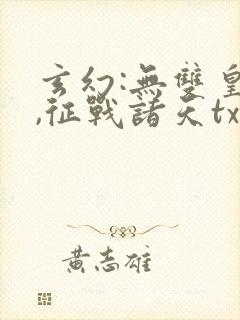 玄幻:無雙皇
,征戰諸天tx
黃志雄